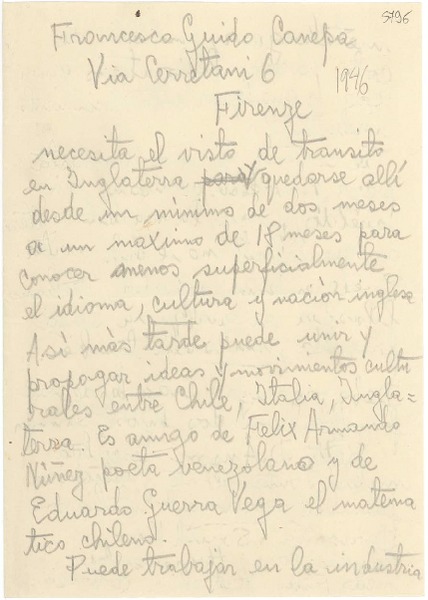 5796
Francesco Guido Canepa
Via Cerretani 6
1946
Firenze
necesita el visto de transito
en Inglaterra para y quedarse allí
desde un minimo de dos meses
a un maximo de 18 meses para
conocer menos superficialmente
el idioma, cultura y nación inglesa
Así más tarde puede unir y
propagar ideas y movimientos cultu
rales entre Chile, Italia, Ingla=
terra. Es amigo de Felix Armando
Núñez poeta venezolano y de
Eduardo Guerra Vega el matema
tico chileno.
Puede trabajar en la industria